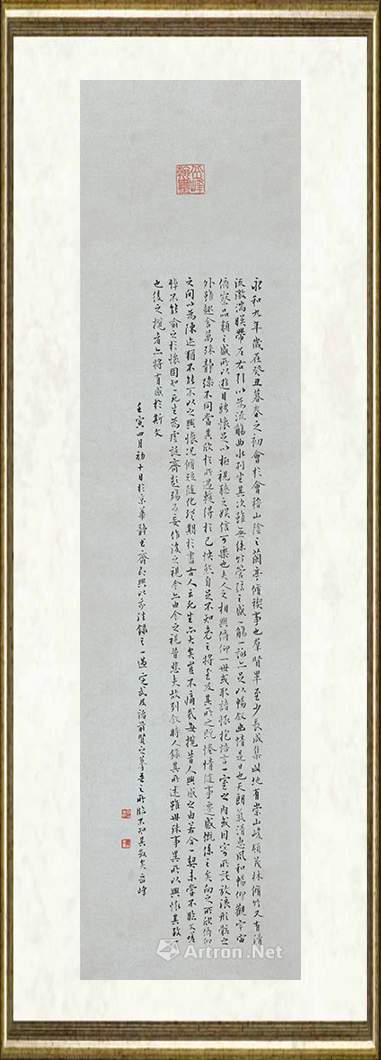 永和九年歲在癸丑暮春之初會於會稽山陰之蘭亭脩禊事也羣賢畢至少長咸集此地有崇山峻領茂林脩竹又有清
流激湍暎帶左右引以為流觴曲水列坐其次雖無絲竹管弦之盛一觴一詠亦足以暢敘幽情是日也天朗氣清惠風和暢仰觀宇宙
俯察品類之盛所以遊目騁懷足以極視聽之娛信可樂也夫人之相與俯仰一世或取諸懷抱悟言一室之內或因寄所託放浪形骸之
外雖趣舍萬殊靜躁不同當其欣於所遇暫得於己快然自足不知老之將至及其所之既惓情隨事遷感慨係之矣向之所欣俛仰
之間以為陳迹猶不能不以之興懷況脩短隨化終期於盡古人云死生亦大矣豈不痛哉每攬昔人興感之由若合一契未嘗不臨文嗟
悼不能喻之於懷固知一死生為虛誕齊彭殤為妄作後之視今亦由今之視昔悲夫故列敘時人錄其所述雖世殊事異所以興懷其致一
也後之攬者亦將有感於斯文
壬寅四月初十日於京華靜 齋 興以 法錄之一過定武及諸前賢之摹
Artron.Net